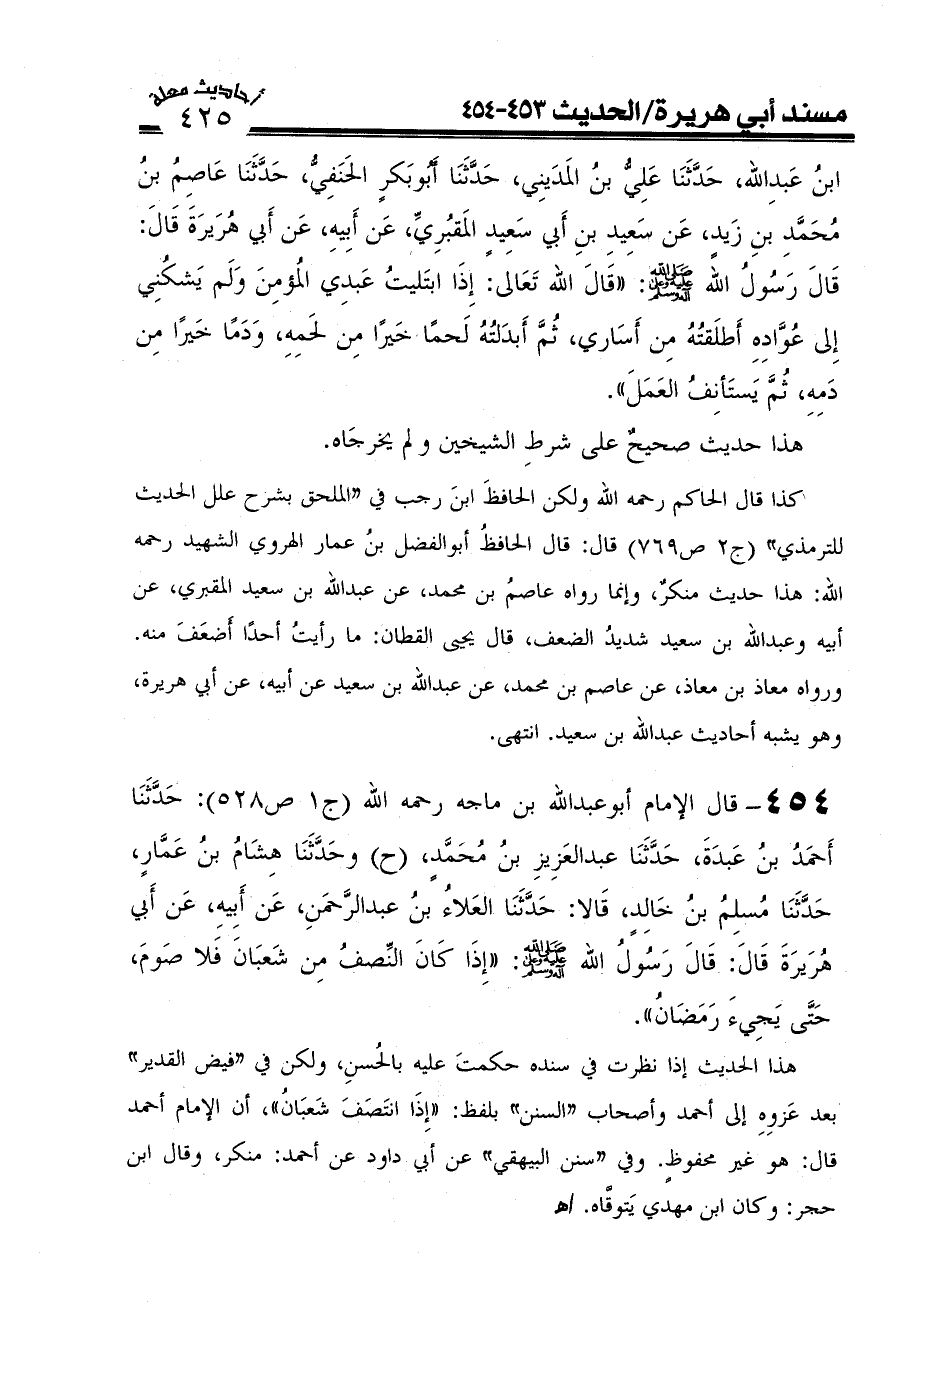 مسند أبي هريرة/الحديث ٤٥٣-٤٥٤
أحاديث معلة
٤٢٥
ابنُ عَبدِالله، حَدَّثَنَا عَلِيُّ بنُ المَدِيني، حَدَّثَنَا أَبُوبَكرٍ الحَنَفِيُّ، حَدَّثَنَا عَاصِمُ بنُ
مُحَمَّدِ بنِ زَيدٍ، عَن سَعِيدِ بنِ أَبي سَعِيدٍ المَقبُرِيِّ، عَن أَبِيهِ، عَن أَبي هُرَيرَةَ قَالَ:
قَالَ رَسُولُ الله ﷺ: «قَالَ الله تَعَالى: إِذَا ابتَلَيتُ عَبدِي المُؤمِنَ وَلَم يَشكُنِي
إِلى عُوَّادِهِ أَطلَقتُهُ مِن أَسَارِي، ثُمَّ أَبدَلتُهُ لَحمًا خَيرًا مِن لَحمِهِ، وَدَمًا خَيرًا مِن
دَمِهِ، ثُمَّ يَستَأنِفُ العَمَلَ».
هذا حديث صحيحٌ على شرطِ الشيخين و لم يخرجَاه.
كذا قال الحاكم رحمه الله ولكن الحافظَ ابنَ رجب في «الملحق بشرح علل الحديث
للترمذي» (ج٢ ص٧٦٩) قال: قال الحافظُ أبوالفضل بنُ عمار الهروي الشهيد رحمه
الله: هذا حديث منكرٌ، وإنما رواه عاصمُ بن محمد، عن عبدالله بن سعيد المقبري، عن
أبيه وعبدالله بن سعيد شديدُ الضعف، قال يحيى القطان: ما رأيتُ أحدًا أَضعَفَ منه.
ورواه معاذ بن معاذ، عن عاصم بن محمد، عن عبدالله بن سعيد عن أبيه، عن أبي هريرة،
وهو يشبه أحاديث عبدالله بن سعيد. انتهى.
٤٥٤- قال الإمام أبوعبدالله بن ماجه رحمه الله (ج١ ص٥٢٨): حَدَّثَنَا
أَحمَدُ بنُ عَبدَةَ، حَدَّثَنَا عبدالعَزِيزِ بنُ مُحَمَّدٍ، (ح) وحَدَّثَنَا هِشَامُ بنُ عَمَّارٍ،
حَدَّثَنَا مُسلِمُ بنُ خَالِدٍ، قَالا: حَدَّثَنَا العَلاءُ بنُ عبدالرَّحمَنِ، عَن أَبِيهِ، عَن أَبي
هُرَيرَةَ قَالَ: قَالَ رَسُولُ الله ﷺ: «إِذَا كَانَ النِّصفُ مِن شَعبَانَ فَلا صَومَ،
حَتَّى يَجِيءَ رَمَضَانُ».
هذا الحديث إذا نظرت في سنده حكمتَ عليه بالحُسنِ، ولكن في «فيض القدير»
بعد عَزوِهِ إلى أحمد وأصحاب «السنن» بلفظ: «إِذَا انتَصَفَ شَعبَانُ»، أن الإمام أحمد
قال: هو غير محفوظٍ. وفي «سنن البيهقي» عن أبي داود عن أحمد: منكر، وقال ابن
حجر: وكان ابن مهدي يَتوقَّاه. اهـ